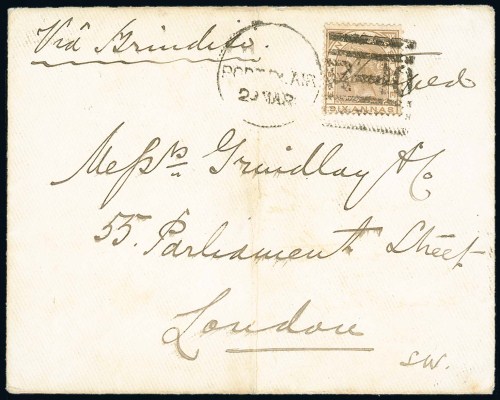 Viâ Brindisi.
PORT BLAIR
29 MAR
SIX ANNAS
Messrs Grindlay & Co
55. Parliament Street
London
S.W.